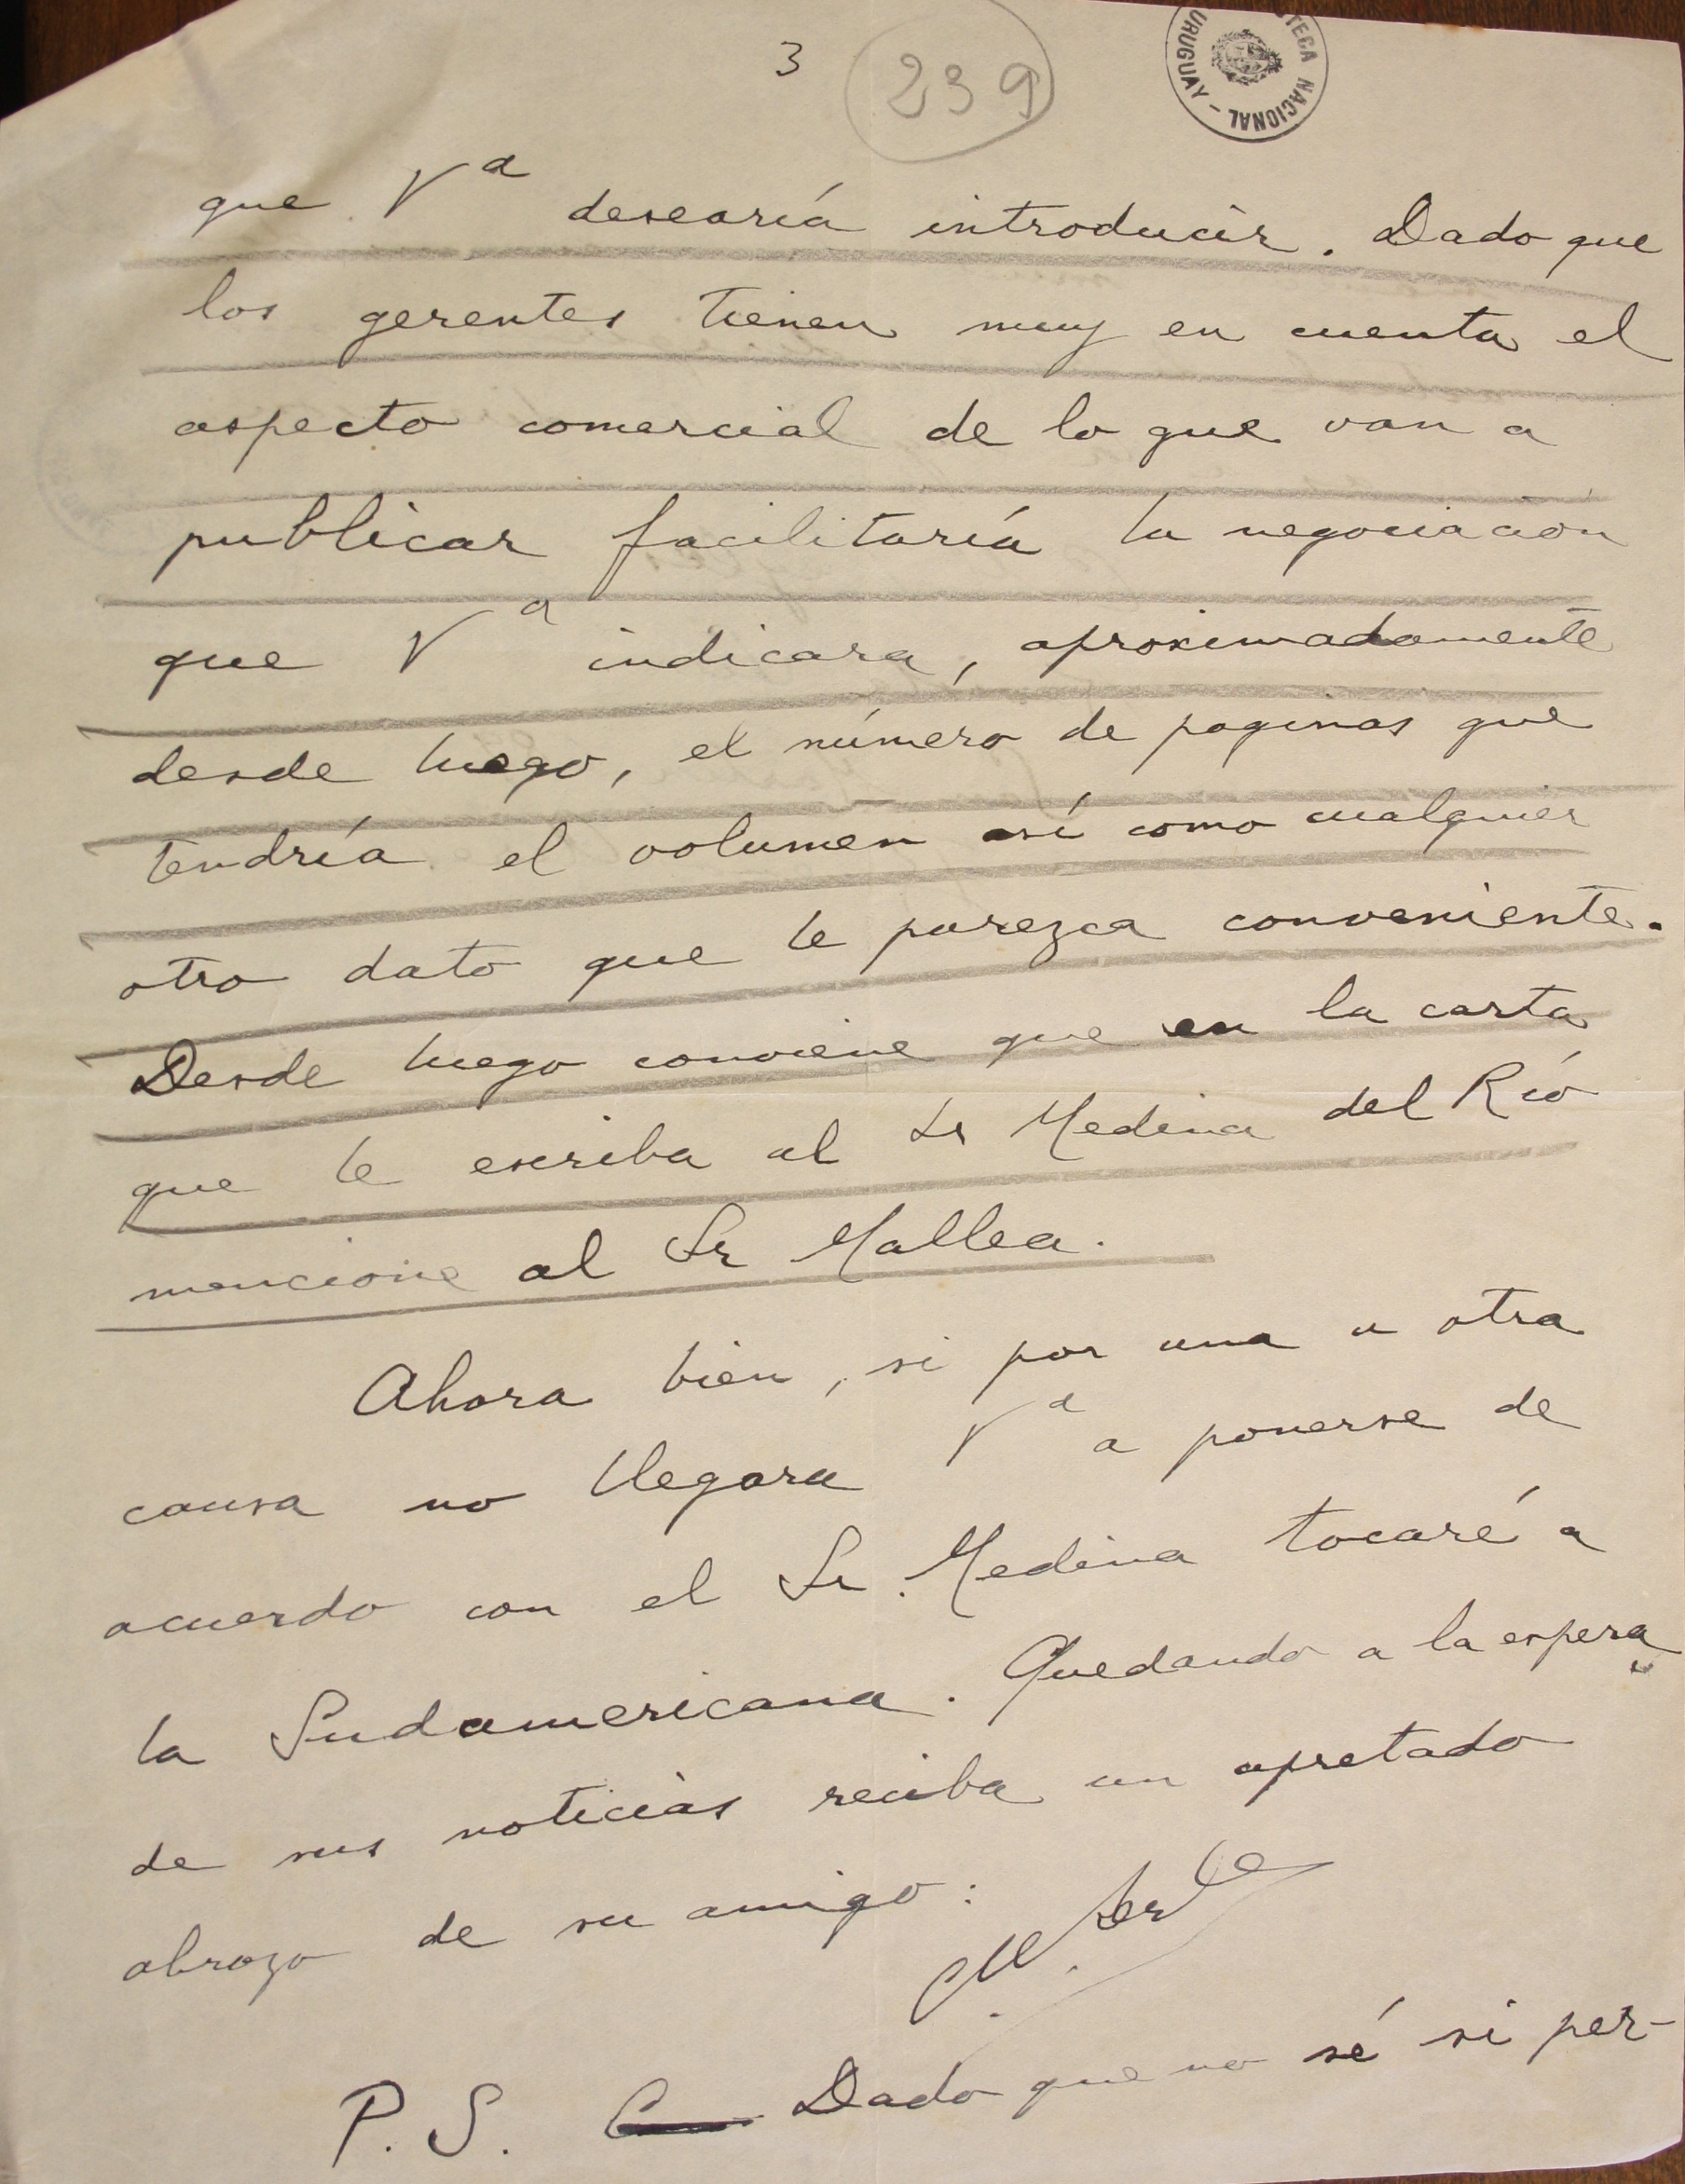 3
239
TECA NACIONAL - URUGUAY
que Vd desearía introducir. Dado que
los gerentes tienen muy en cuenta el
aspecto comercial de lo que van a
publicar facilitaría la negociación
que Vd indicara, aproximadamente
desde luego, el número de paginas que
tendría el volumen así como cualquier
otro dato que le parezca conveniente.
Desde luego conviene que en la carta
que le escriba al Sr Medina del Río
mencione al Sr Mallea.
Ahora bien, si por una u otra
causa no llegara Vd a ponerse de
acuerdo con el Sr. Medina tocaré a
la Sudamericana. Quedando a la espera
de sus noticias reciba un apretado
abrazo de su amigo:
P.S. Dado que no sé si per-